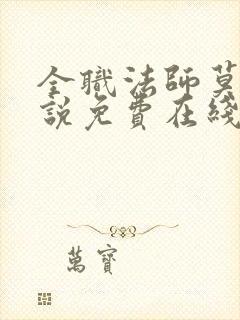 全職法師莫
說免費在綫
萬寶